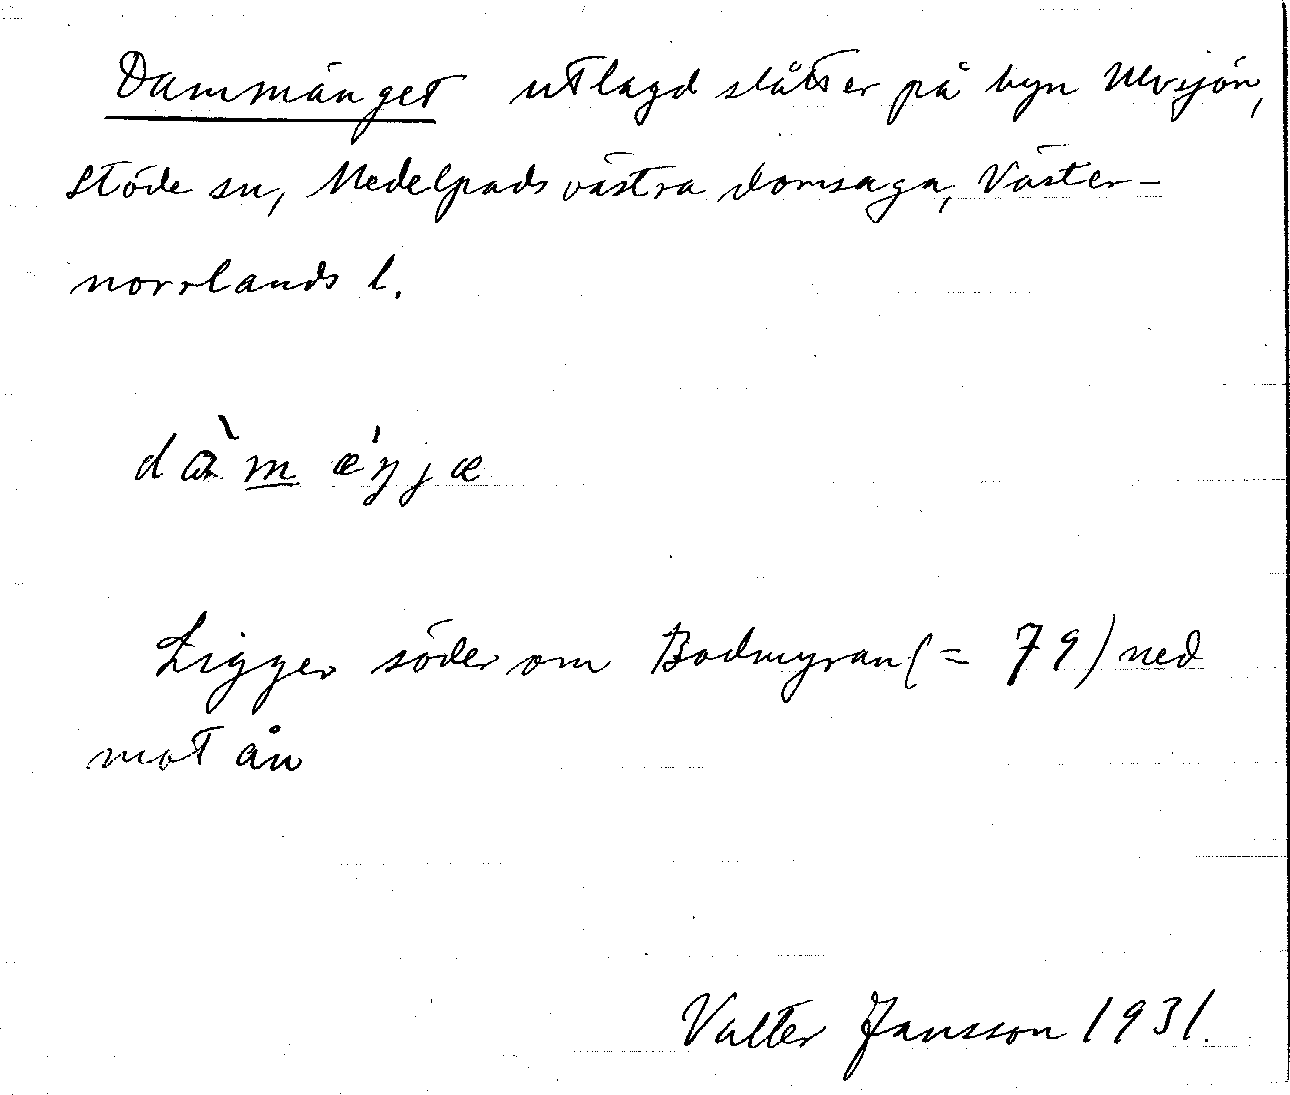 Dammänget utlagd slåtter på byn Ulvsjön,
Stöde sn, Medelpads västra domsaga, Väster-
norrlands l.
dàm ǽŋjæ
Ligger söder om Bodmyran (= 79) ned
mot ån
Valter Jansson 1931.